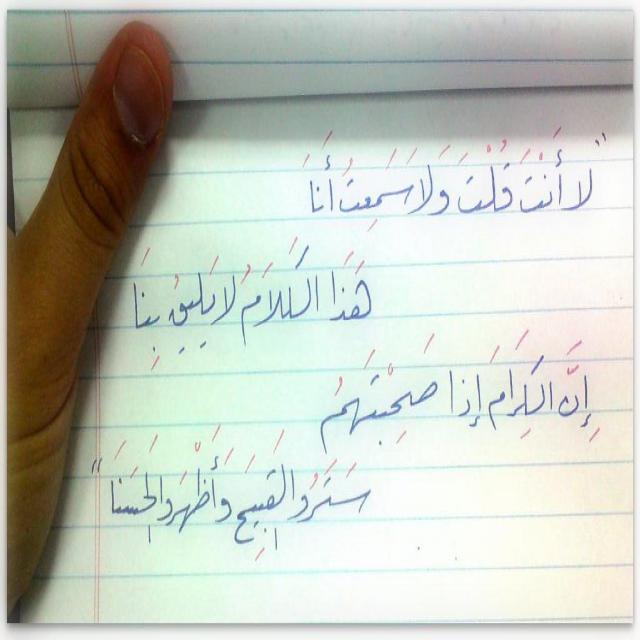 "لا أَنْتَ قُلْتَ وَلاَ سَمِعتُ أَنَا
هَذَا الكَلاَمُ لاَ يَلِيقُ بِنَا
إِنَّ الكِرَامَ إِذَا صَحِبْتَهُمُ
سَتَرُوا القَبِيحَ وَأَظْهَرُوا الحَسَنَا"